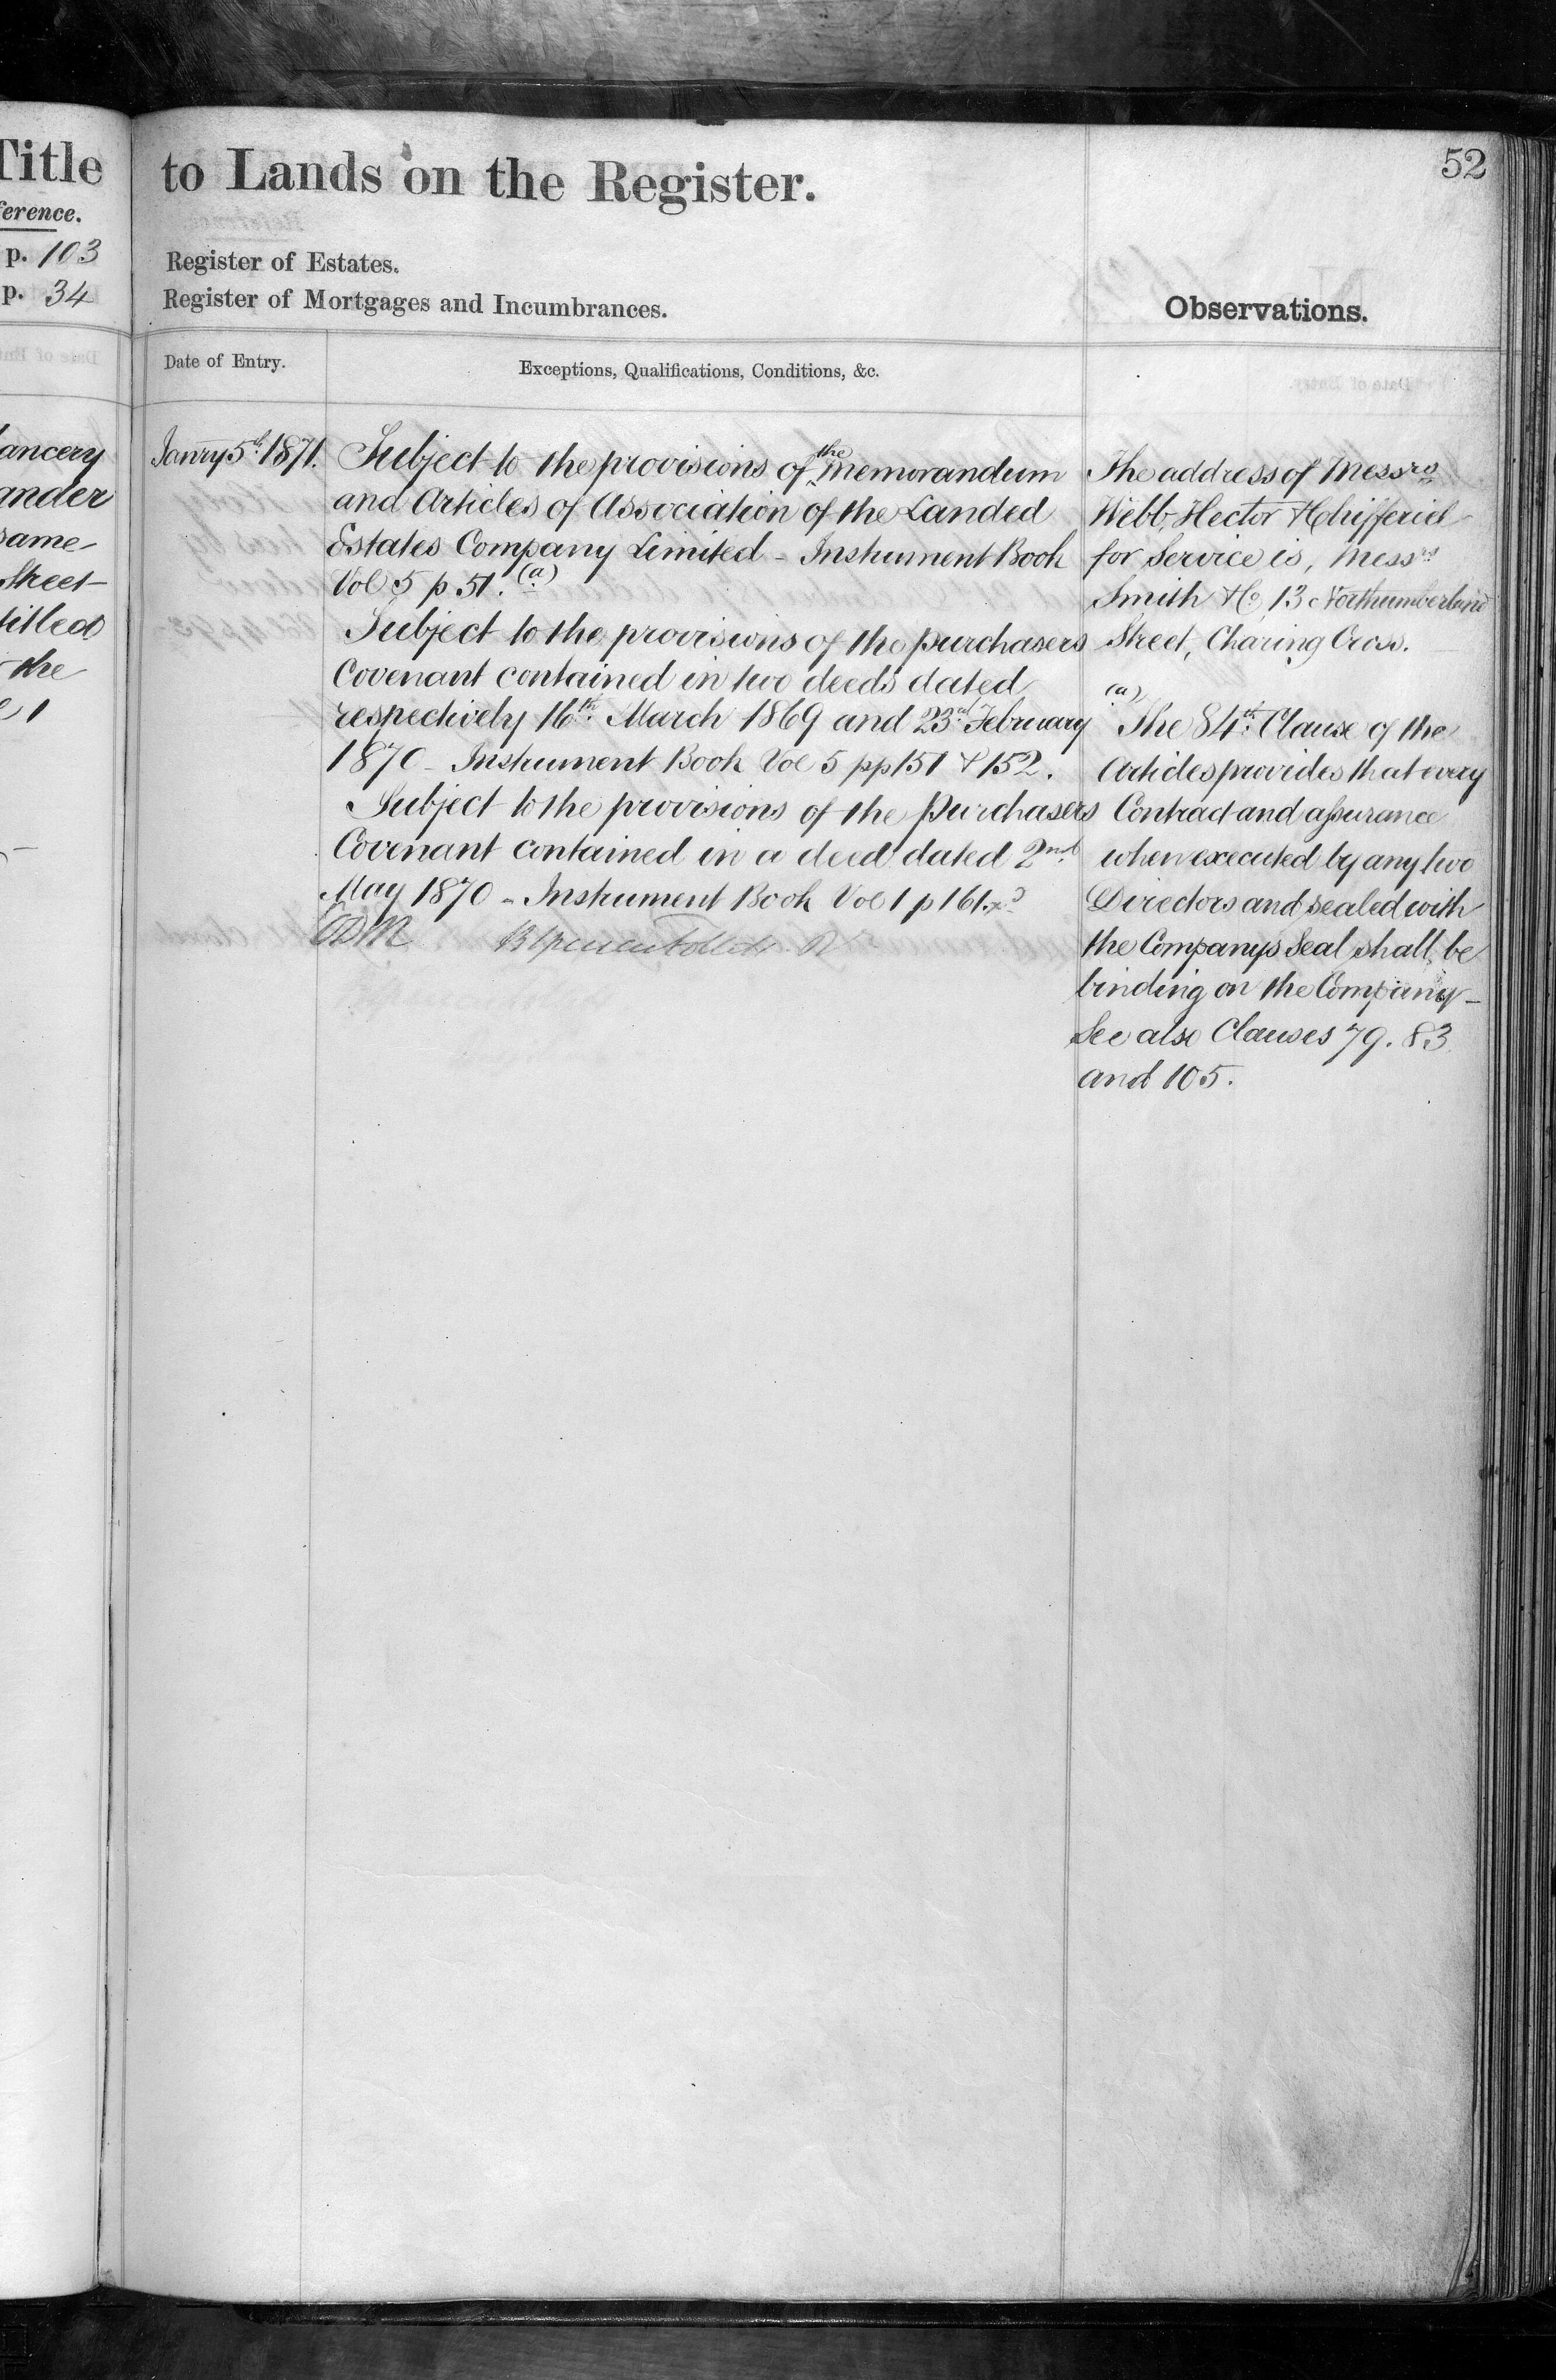 Title
ference.
p. 103
p. 34
ancery
ander
same
Street
titled
the
1
52
to Lands on the Register.
Register of Estates.
Register of Mortgages and Incumbrances.
Date of Entry.
Exceptions, Qualifications, Conditions, &c.
Janry 5th 1871.
Subject to the provisions of the memorandum
and Articles of Association of the Landed
Estates Company Limited - Instrument Book
Vol 5 p 51. (a)
Subject to the provisions of the purchasers
Covenant contained in two deeds dated
respectively 16th March 1869 and 23rd February
1870 - Instrument Book Vol 5 pp 151 & 152.
Subject to the provisions of the purchasers
Covenant contained in a deed dated 2nd
May 1870 - Instrument Book Vol 1 p 161.
Observations.
The address of Messrs
Webb, Hector &
for Service is, Messrs
Smith & Co, 13 Northumberland
Street, Charing Cross.
(a)
The 84th Clause of the
Articles provides that every
Contract and assurance
when executed by any two
Directors and sealed with
the Companys Seal shall be
binding on the Company -
See also Clauses 79. 83
and 105.